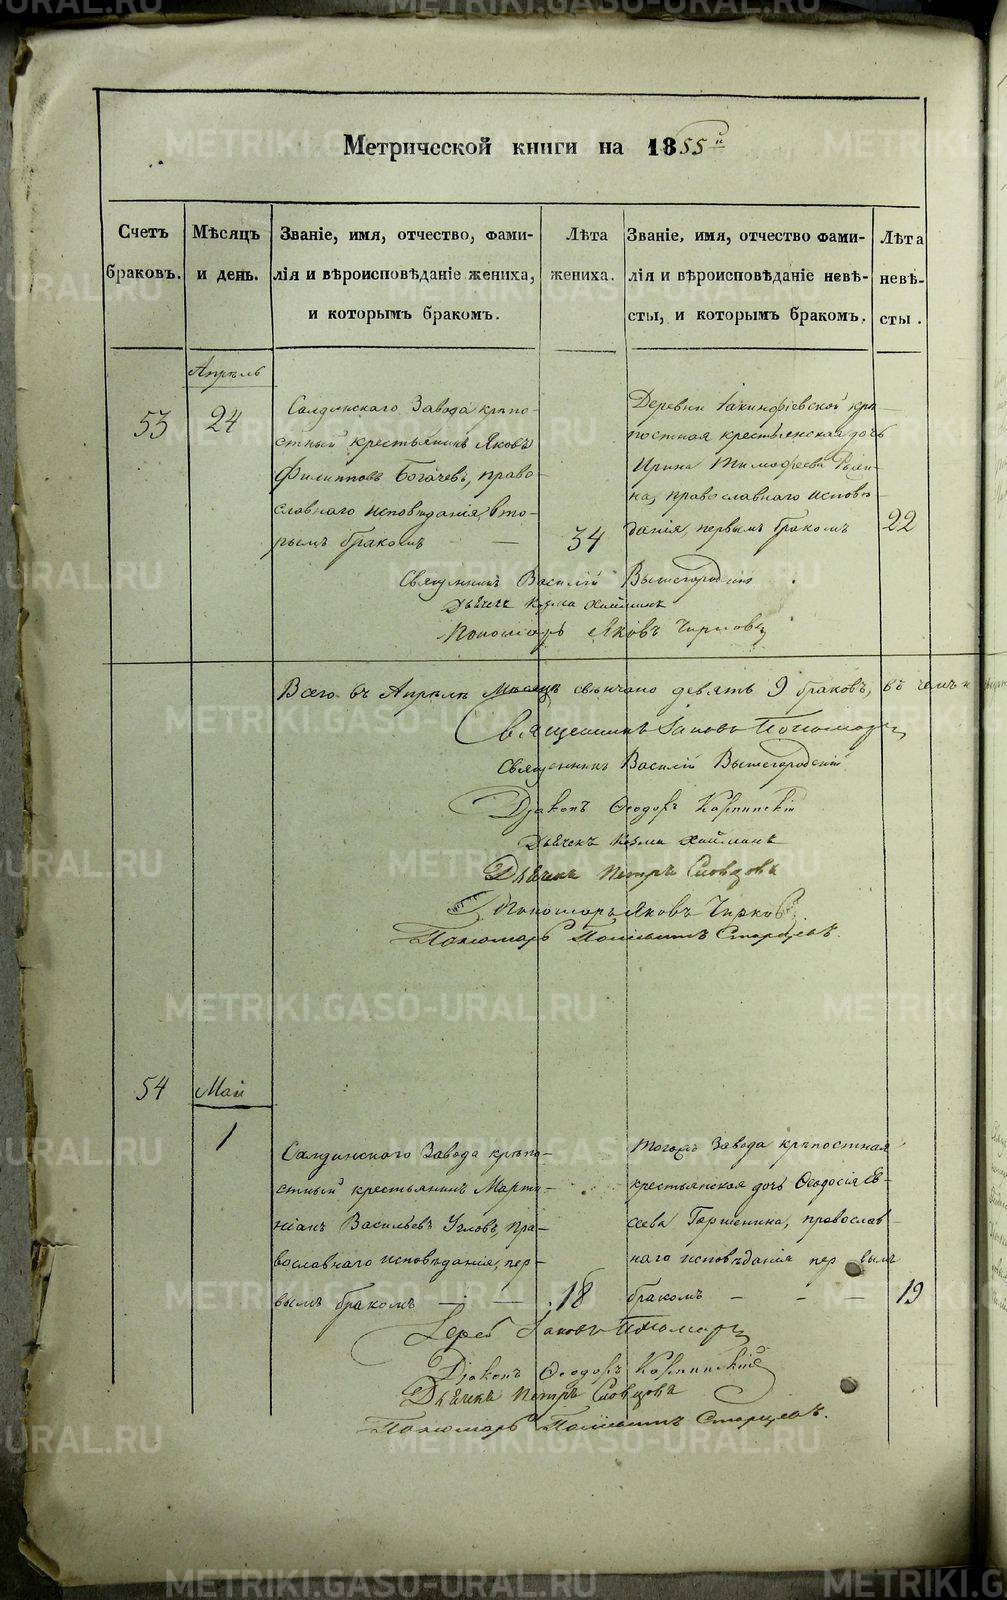 Метрической книги на 1855й
Счетъ браковъ.
Мѣсяцъ и день.
Званіе, имя, отчество, фами-
лія и вѣроисповѣданіе жениха,
и которымъ бракомъ.
Лѣта жениха.
Званіе, имя, отчество фами-
лія и вѣроисповѣданіе невѣ-
сты, и которымъ бракомъ.
Лѣта невѣ-
сты.
Апрѣль
53
24
Салдинскаго Завода крѣпо-
стный крестьянинъ Яковъ
Филипповъ Богачевъ, право-
славнаго исповѣданія, вто-
рымъ бракомъ —
34
Деревни Іакинфіевской крѣ-
постная крестьянская дочь
Ирина Тимофеева
православнаго исповѣ-
данія, первымъ бракомъ
22
Священникъ Василій Вышегородскій
Дьячекъ Козма
Пономарь Яковъ Чирковъ
Всего въ Апрѣлѣ Мѣсяцѣ свѣнчано девять 9 браковъ, въ чемъ и
Священникъ Іаковъ Пономаревъ
Священникъ Василій Вышегородскій
Діаконъ Ѳеодоръ Карпинскій
Дьячекъ Козма
Дьячекъ Петръ Словцовъ
Пономарь Яковъ Чирковъ
Пономарь Поліевктъ Старцевъ.
54
Май
1
Салдинскаго Завода крѣпо-
стный крестьянинъ Марти-
ніанъ Васильевъ Угловъ, пра-
вославнаго исповѣданія, пер-
вымъ бракомъ — —
18
Тогожъ Завода крѣпостная
крестьянская дочь Ѳеодосія Ев-
сеева Горшенина, православ-
наго исповѣданія первымъ
бракомъ — — —
19
Іерей Іаковъ Пономаревъ
Діаконъ Ѳеодоръ Карпинскій
Дьячекъ Петръ Словцовъ
Пономарь Поліевктъ Старцевъ.
METRIKI.GASO-URAL.RU